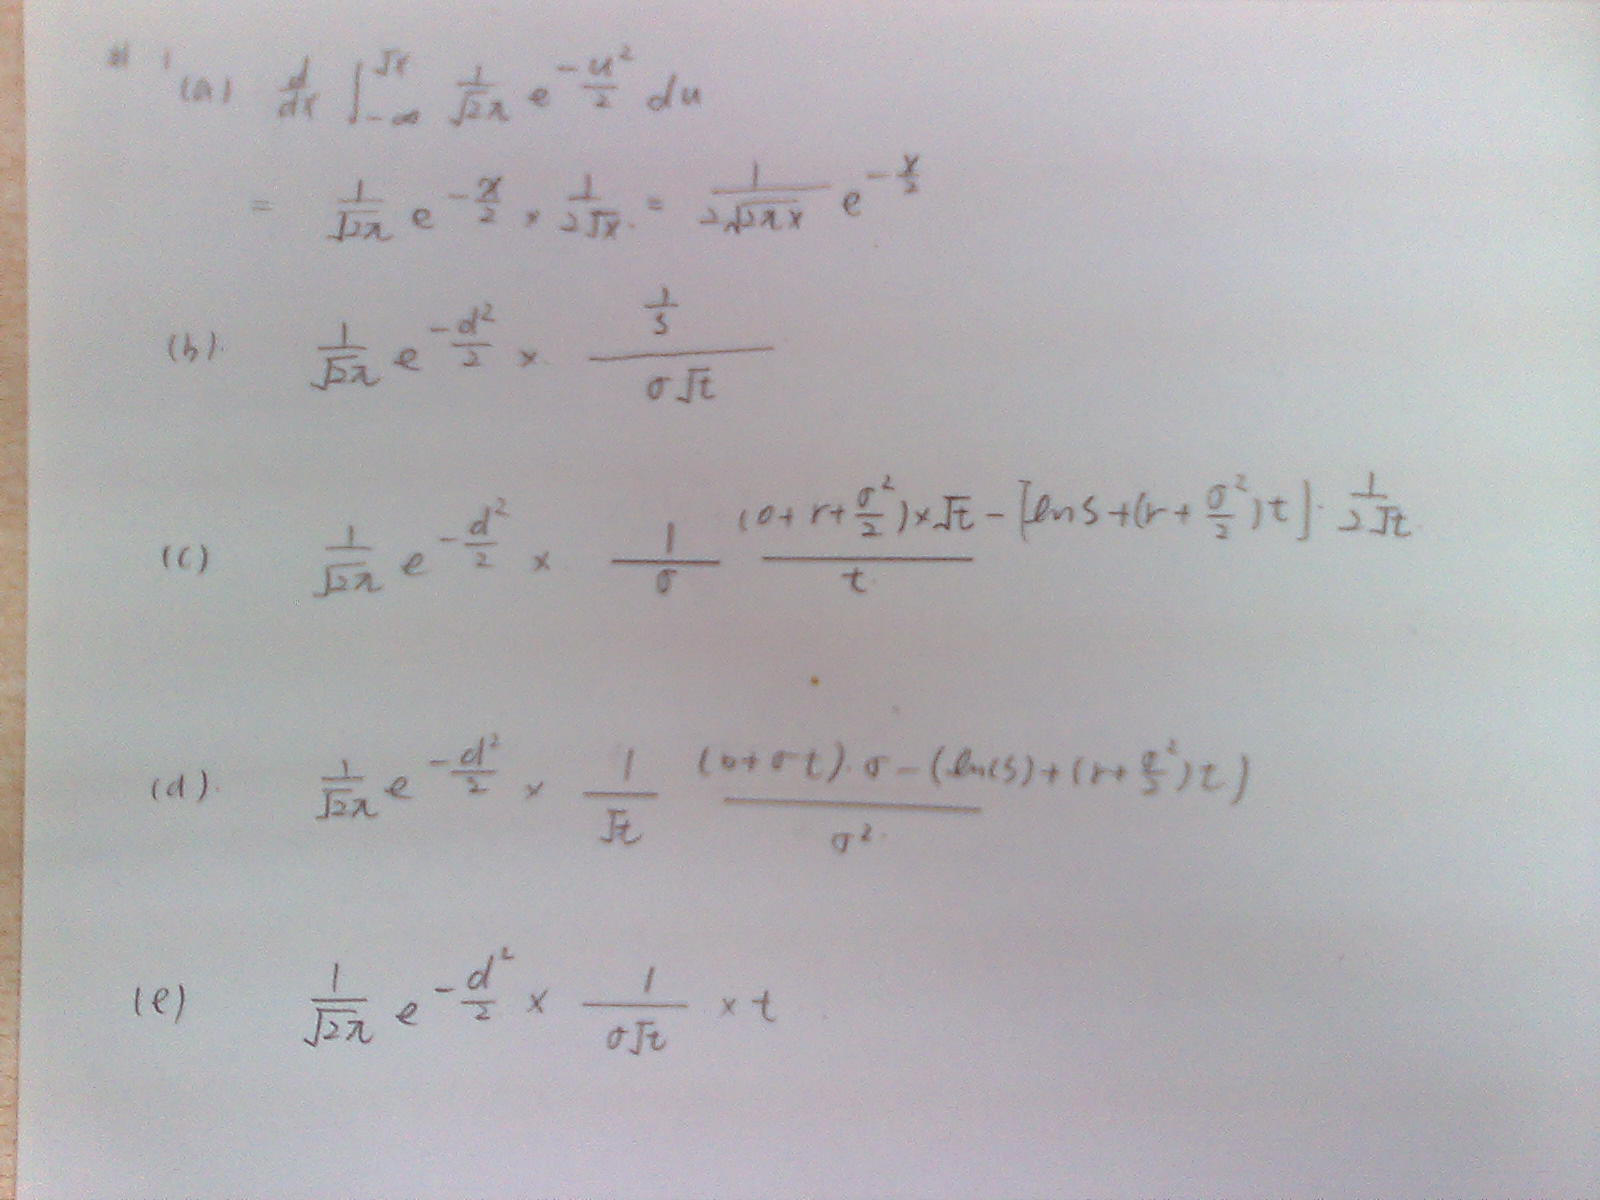 (a) d/dx ∫_{-∞}^{√x} 1/√2π e^{-u²/2} du
= 1/√2π e^{-x/2} × 1/2√x = 1/2√2πx e^{-x/2}
(b). 1/√2π e^{-d²/2} × (1/s)/(σ√t)
(c) 1/√2π e^{-d²/2} × 1/σ ((0+r+σ²/2)×√t - [ln s+(r+σ²/2)t]·1/2√t)/t
(d). 1/√2π e^{-d²/2} × 1/√t ((0+σt)·σ-(ln(s)+(r+σ²/2)t))/σ²
(e) 1/√2π e^{-d²/2} × 1/σ√t × t